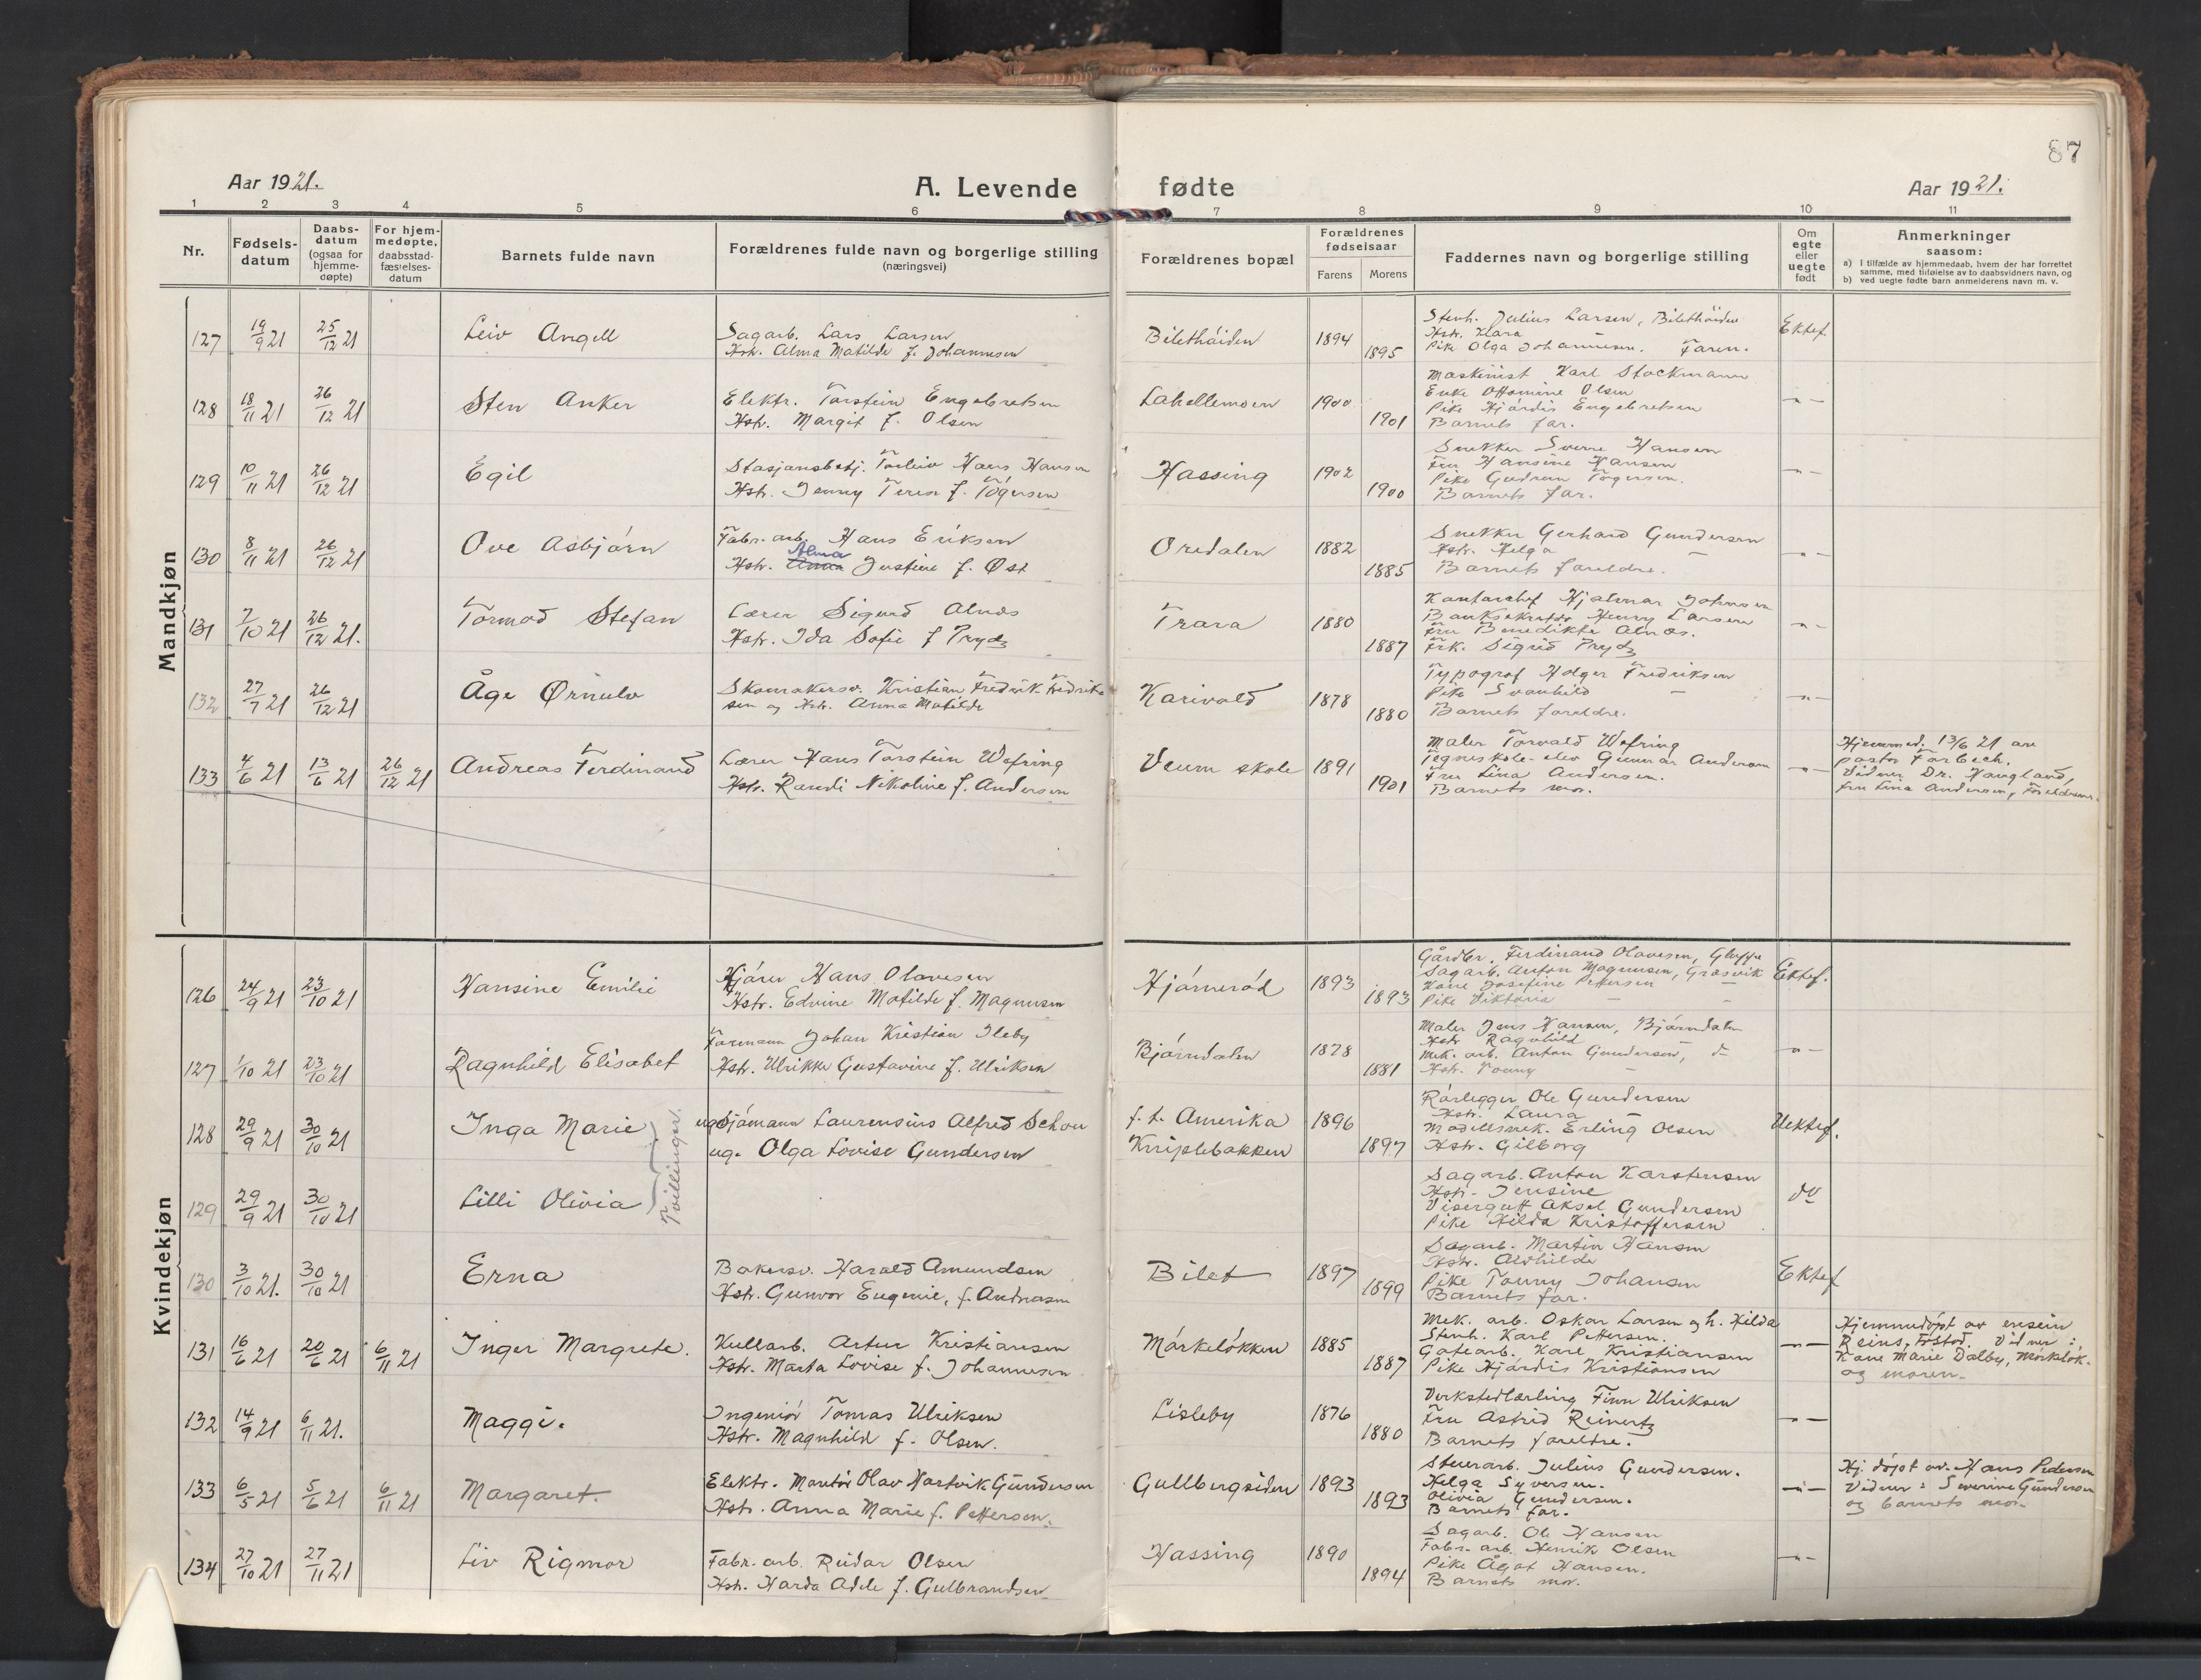 87
Aar 1921.
A. Levende fødte
Aar 1921.
1 2 3 4 5 6 7 8 9 10 11
Nr.
Fødselsdatum
Daabsdatum (ogsaa for hjemmedøpte)
For hjemmedøpte, daabsstadfæstelsesdatum
Barnets fulde navn
Forældrenes fulde navn og borgerlige stilling (næringsvei)
Forældrenes bopæl
Forældrenes fødselsaar
Farens Morens
Faddernes navn og borgerlige stilling
Om egte eller uegte født
Anmerkninger saasom:
a) I tilfælde av hjemmedaab, hvem der har forrettet samme, med tilføielse av to daabsvidners navn, og
b) ved uegte fødte barn anmelderens navn m. v.
Mandkjøn
127 19/9 21 25/12 21 Leiv Angell
Sagarb. Lars Larsen
Hstr. Alma Matilde f. Johannesen
Bilethöiden 1894 1895
Stenh. Julius Larsen, Bilethöiden
Hstr. Klara —
Pike Olga Johannesen. Faren.
Ektef.
128 18/11 21 26/12 21 Sten Anker
Elektr. Torstein Engebretsen
Hstr. Margit f. Olsen
Lahellemoen 1900 1901
Maskinist Karl Stockmann
Enke Ottomine Olsen
Pike Hjördis Engebretsen
Barnets far.
—"—
129 10/11 21 26/12 21 Egil
Stasjonsbetj. Torleiv Hans Hansen
Hstr. Jenny Terese f. Tögersen
Hassing 1902 1900
Snekker Sverre Hansen
Fru Hansine Hansen
Pike Gudrun Törgersen.
Barnets far.
—"—
130 8/11 21 26/12 21 Ove Asbjörn
Fabr. arb. Hans Eriksen
Alma
Hstr. Anna Justine f. Øst
Oredalen 1882 1885
Snekker Gerhard Gundersen
Hstr. Helga —
Barnets foreldre.
—"—
131 7/10 21 26/12 21. Tormod Stefan
Lærer Sigurd Alnæs
Hstr. Ida Sofie f Prydz
Trara 1880 1887
Kontorchef Hjalmar Johnsen
Banksekretær Henry Larsen
Fru Benedikte Alnæs.
Frk. Sigrid Prydz
—"—
132 27/7 21 26/12 21 Åge Ørnulv
Skomakersv. Kristian Fredrik Fredriksen
og Hstr. Anna Matilde
Karivold 1878 1880
Typograf Holger Fredriksen
Pike Svanhild —
Barnets foreldre.
—"—
133 4/6 21 13/6 21 26/12 21 Andreas Ferdinand
Lærer Hans Torstein Wefring
Hstr. Randi Nikoline f. Andersen
Veum skole 1891 1901
Maler Torvald Wefring
Tegneskole-elev Gunnar Andersen
Fru Lina Andersen.
Barnets mor.
—"—
Hjemmed. 13/6 21 av
pastor Farbech.
Vidner Dr. Haugland,
fru Lina Andersen, Foreldrene.
Kvindekjøn
126 24/9 21 23/10 21 Hansine Emilie
Kjörer Hans Olavesen
Hstr. Edvine Matilde f. Magnussen
Hjörneröd 1893 1893
Gårdbr. Ferdinand Olavesen, Gluppe
Sagarb. Anton Magnussen, Græsvik
Kone Josefine Pettersen —
Pike Viktoria — —
Ektef.
127 1/10 21 23/10 21 Ragnhild Elisabet
Formann Johan Kristian Ileby
Hstr. Ulrikke Gustavine f. Ulriksen
Björndalen 1878 1881
Maler Jens Hansen, Björndalen
Hstr Ragnhild
Mek. arb. Anton Gundersen, do
Hstr. —
—"—
128 29/9 21 30/10 21 Inga Marie
Tvillinger.
ug. Sjömann Laurensius Alfred Schou
ug. Olga Lovise Gundersen
f. t. Amerika
Kniplebakken 1896 1897
Rörlegger Ole Gundersen
Hstr. Laura —
Modellsnek. Erling Olsen
Hstr. Gilborg
Uektef.
129 29/9 21 30/10 21 Lilli Olivia
Sagarb. Anton Karstensen
Hstr. Jensine
Visergutt Aksel Gundersen
Pike Hilda Kristoffersen
do
130 3/10 21. 30/10 21 Erna
Bakersv. Harald Amundsen
Hstr. Gunvor Eugenie, f. Andreasen
Bilet 1897 1899
Sagarb. Martin Hansen
Hstr. Alvhilde
Pike Tonny Johansen
Barnets far.
Ektef
131 16/6 21 20/6 21 6/11 21 Inger Margrete.
Kullarb. Artur Kristiansen
Hstr. Marta Lovise f. Johannesen
Mörkelökken 1885 1887
Mek. arb. Oskar Larsen og h. Hilda
Stenh. Karl Pettersen.
Gatearb. Karl Kristiansen
Pike Hjördis Kristiansen
—"—
Hjemmedöpt av
Reins, Fr.stad. Vidner:
Kone Marie Dalby, Mörkelök.
og moren.
132 14/9 21 6/11 21. Maggi.
Ingeniör Tomas Ulriksen
Hstr. Magnhild f. Olsen.
Lisleby 1876 1880
Verkstedlærling Finn Ulriksen
Fru Astrid Reinertz
Barnets foreldre.
—"—
133 6/5 21 5/6 21 6/11 21 Margaret.
Elektr. Montör Olav Hartvik Gundersen
Hstr. Anna Marie f. Pettersen.
Gullbergsiden 1893 1893
Stuerarb. Julius Gundersen.
Helga Syversen.
Olivia Gundersen.
Barnets far.
—"—
Hj. döpt av Hans Pedersen
Vidner: Severine Gundersen
og barnets mor.
134 27/10 21 27/11 21 Liv Rigmor
Fabr. arb. Reidar Olsen
Hstr. Harda Adele f. Gulbrandsen
Hassing 1890 1894
Sagarb. Ole Hansen
Fabr. arb. Henrik Olsen
Pike Ågot Hansen.
Barnets mor.
—"—